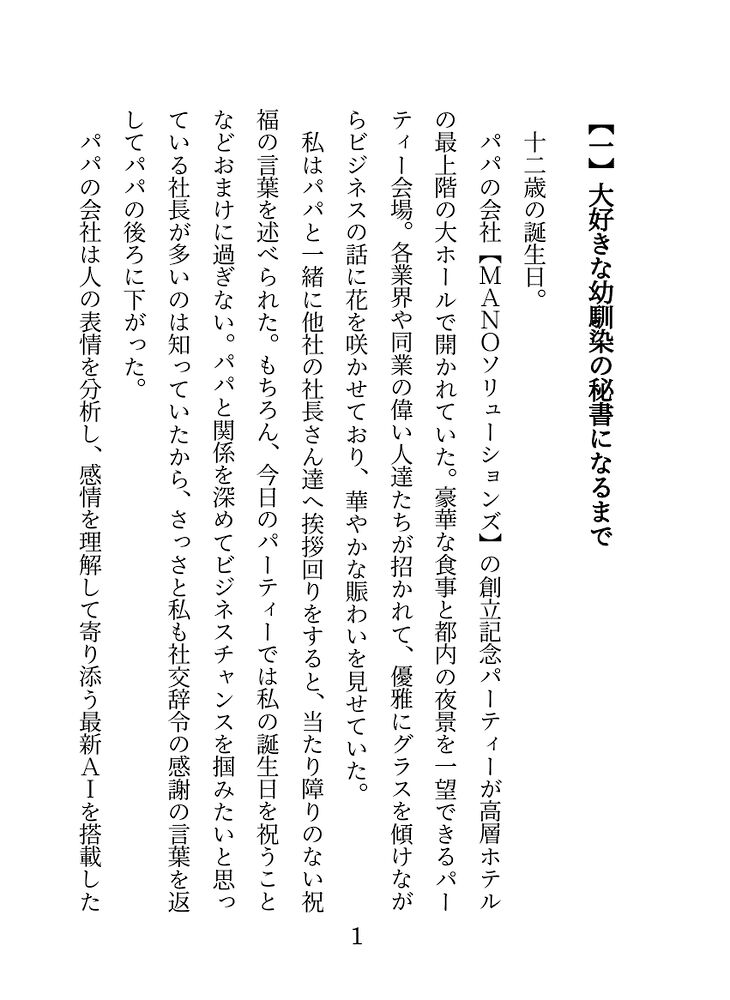 【一】大好きな幼馴染の秘書になるまで
十二歳の誕生日。
パパの会社【ＭＡＮＯソリューションズ】の創立記念パーティーが高層ホテル
の最上階の大ホールで開かれていた。豪華な食事と都内の夜景を一望できるパー
ティー会場。各業界や同業の偉い人達たちが招かれて、優雅にグラスを傾けなが
らビジネスの話に花を咲かせており、華やかな賑わいを見せていた。
私はパパと一緒に他社の社長さん達へ挨拶回りをすると、当たり障りのない祝
福の言葉を述べられた。もちろん、今日のパーティーでは私の誕生日を祝うこと
などおまけに過ぎない。パパと関係を深めてビジネスチャンスを掴みたいと思っ
ている社長が多いのは知っていたから、さっさと私も社交辞令の感謝の言葉を返
してパパの後ろに下がった。
パパの会社は人の表情を分析し、感情を理解して寄り添う最新ＡＩを搭載した
1